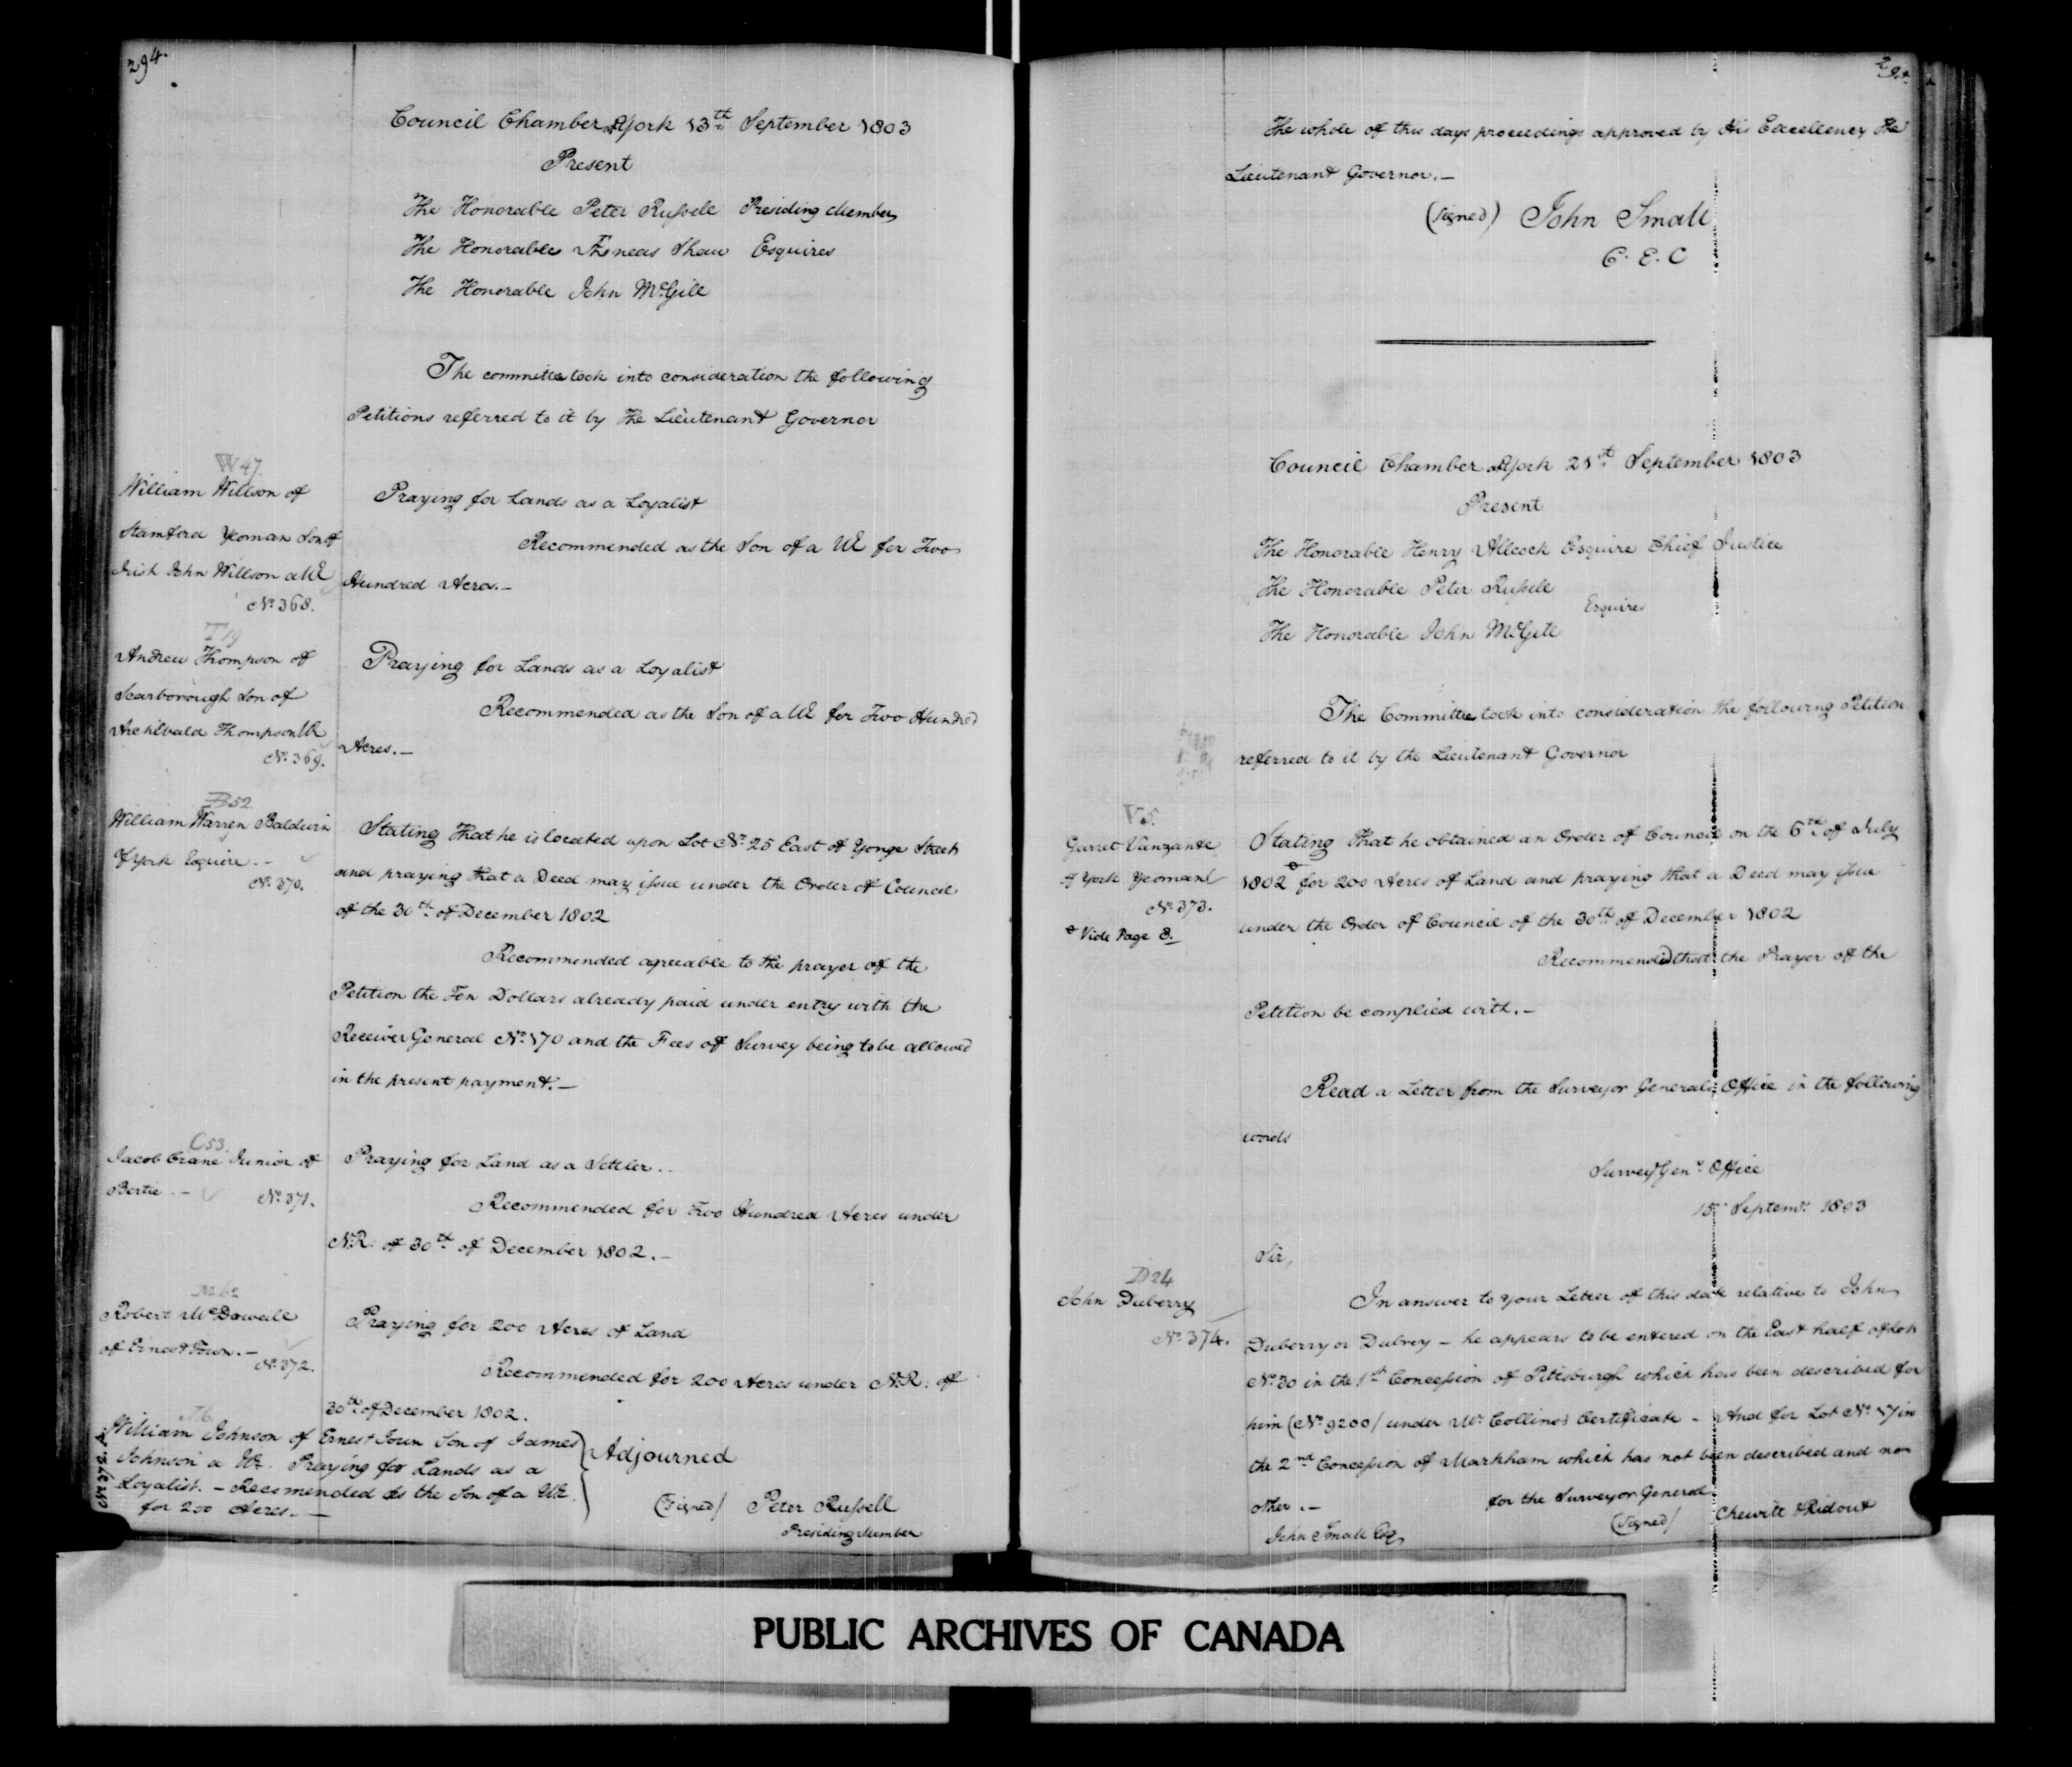 294.
Council Chamber at York 13th September 1803
Present
The Honorable Peter Russell Presiding Member
The Honorable Æneas Shaw Esquires
The Honorable John McGill
The committee took into consideration the following
Petitions referred to it by the Lieutenant Governor
W 47.
William Willson of
Stamford Yeoman Son of
Irish John Willson a UE
No. 368.
Praying for Lands as a Loyalist
Recommended as the Son of a UE for Two
Hundred Acres.—
T 19
Andrew Thompson of
Scarborough Son of
Archibald Thompson UE
No. 369.
Praying for Lands as a Loyalist
Recommended as the Son of a UE for Two Hundred
Acres.—
B 52
William Warren Baldwin
of York Esquire.—
No. 370.
Stating that he is located upon Lot No. 25 East of Yonge Street
and praying that a Deed may issue under the Order of Council
of the 30th of December 1802
Recommended agreeable to the prayer of the
Petition the Ten Dollars already paid under entry with the
Receiver General No. 170 and the Fees of Survey being to be allowed
in the present payment.—
C 53.
Jacob Crane Junior of
Bertie.—
No. 371.
Praying for Land as a Settler..
Recommended for Two Hundred Acres under
N.R. of 30th of December 1802.—
M 62
Robert McDowell
of Ernest Town.—
No. 372.
Praying for 200 Acres of Land
Recommended for 200 Acres under N.R. of
30th of December 1802.
No 372. A
William Johnson of Ernest Town Son of James
Johnson a UE. Praying for Lands as a
Loyalist.— Recomended as the Son of a UE
for 200 Acres.—
Adjourned
(Signed) Peter Russell
Presiding Member
The whole of this days proceedings approved by His Excellency the
Lieutenant Governor.—
(Signed) John Small
C. E. C
Council Chamber at York 21st September 1803
Present
The Honorable Henry Allcock Esquire Chief Justice
The Honorable Peter Russell
Esquires
The Honorable John McGill
The Committee took into consideration the following Petition
referred to it by the Lieutenant Governor
V 5.
Garret Vanzante
of York Yeoman
No. 373.
Vide Page 8.
Stating that he obtained an Order of Council on the 6th of July
1802 for 200 Acres of Land and praying that a Deed may issue
under the Order of Council of the 30th of December 1802
Recommended that the Prayer of the
Petition be complied with.—
Read a Letter from the Surveyor Generals Office in the following
words
Survey Genl. Office
15 Septemr. 1803
Sir,
D 24
John Duberry
No. 374.
In answer to your Letter of this date relative to John
Duberry or Dubrey — he appears to be entered on the East half of Lot
No. 30 in the 1st Concession of Pittsburgh which has been described for
him (No. 9200) under Mr. Collins's Certificate — And for Lot No. 17 in
the 2nd Concession of Markham which has not been described and no
other.—
for the Surveyor General
(Signed) Chewitt & Ridout
John Small Esq
PUBLIC ARCHIVES OF CANADA